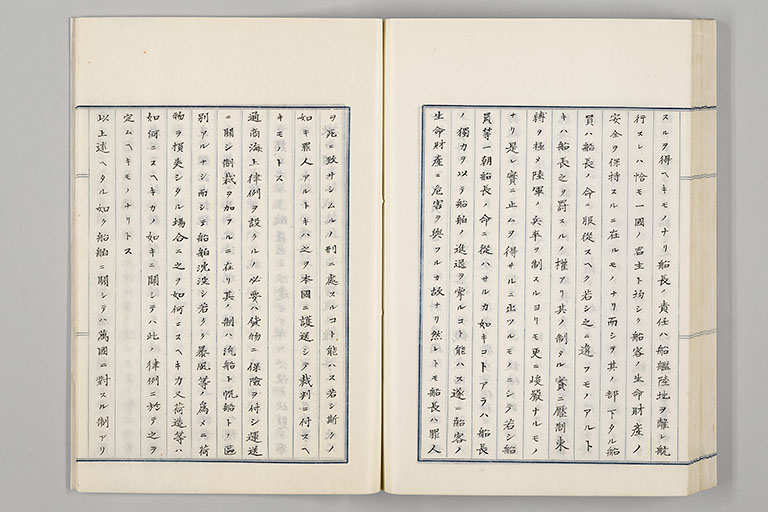 スルヲ得ヘキモノナリ船長ノ責任ハ船艦陸地ヲ離レ航
行スレハ恰モ一國ノ君主ト均シク船客ノ生命財產ノ
安全ヲ保持スルニ在ルモノナリ而シテ其ノ部下タル船
員ハ船長ノ命ニ服從スヘク若シ之ニ違フモノアルト
キハ船長之ヲ罰スルノ權アリ其ノ制タル實ニ壓制束
縛ヲ極メ陸軍ノ兵卒ヲ制スルヨリモ更ニ峻嚴ナルモノ
ナリ是レ實ニ止ムヲ得サルニ出ツルモノニシテ若シ船
員等一朝船長ノ命ニ從ハサルカ如キコトアラハ船長
ノ獨力ヲ以テ船舶ノ進退ヲ掌ルコト能ハス遂ニ船客ノ
生命財產ニ危害ヲ與フルカ故ナリ然レトモ船長ハ罪人
ヲ死ニ致サシムルノ刑ニ處スルコト能ハス若シ斯クノ
如キ罪人アルトキハ之ヲ本國ニ護送シテ裁判ニ付スヘ
キモノトス
通商海上律例ヲ設クルノ必要ハ貨物ニ保險ヲ付シ運送
ニ關シ制裁ヲ加フルニ在リ其ノ制ハ汽船ト帆船トノ區
別アルナシ而シテ船舶沈沒シ若クハ暴風等ノ爲メニ荷
物ヲ損失シタル場合ニ之ヲ如何ニスヘキカ又荷造等ハ
如何ニスヘキカノ如キニ關シテハ此ノ律例ニ於テ之ヲ
定ムヘキモノナリトス
以上述ヘタル如ク船舶ニ關シテハ萬國ニ對スル制アリ